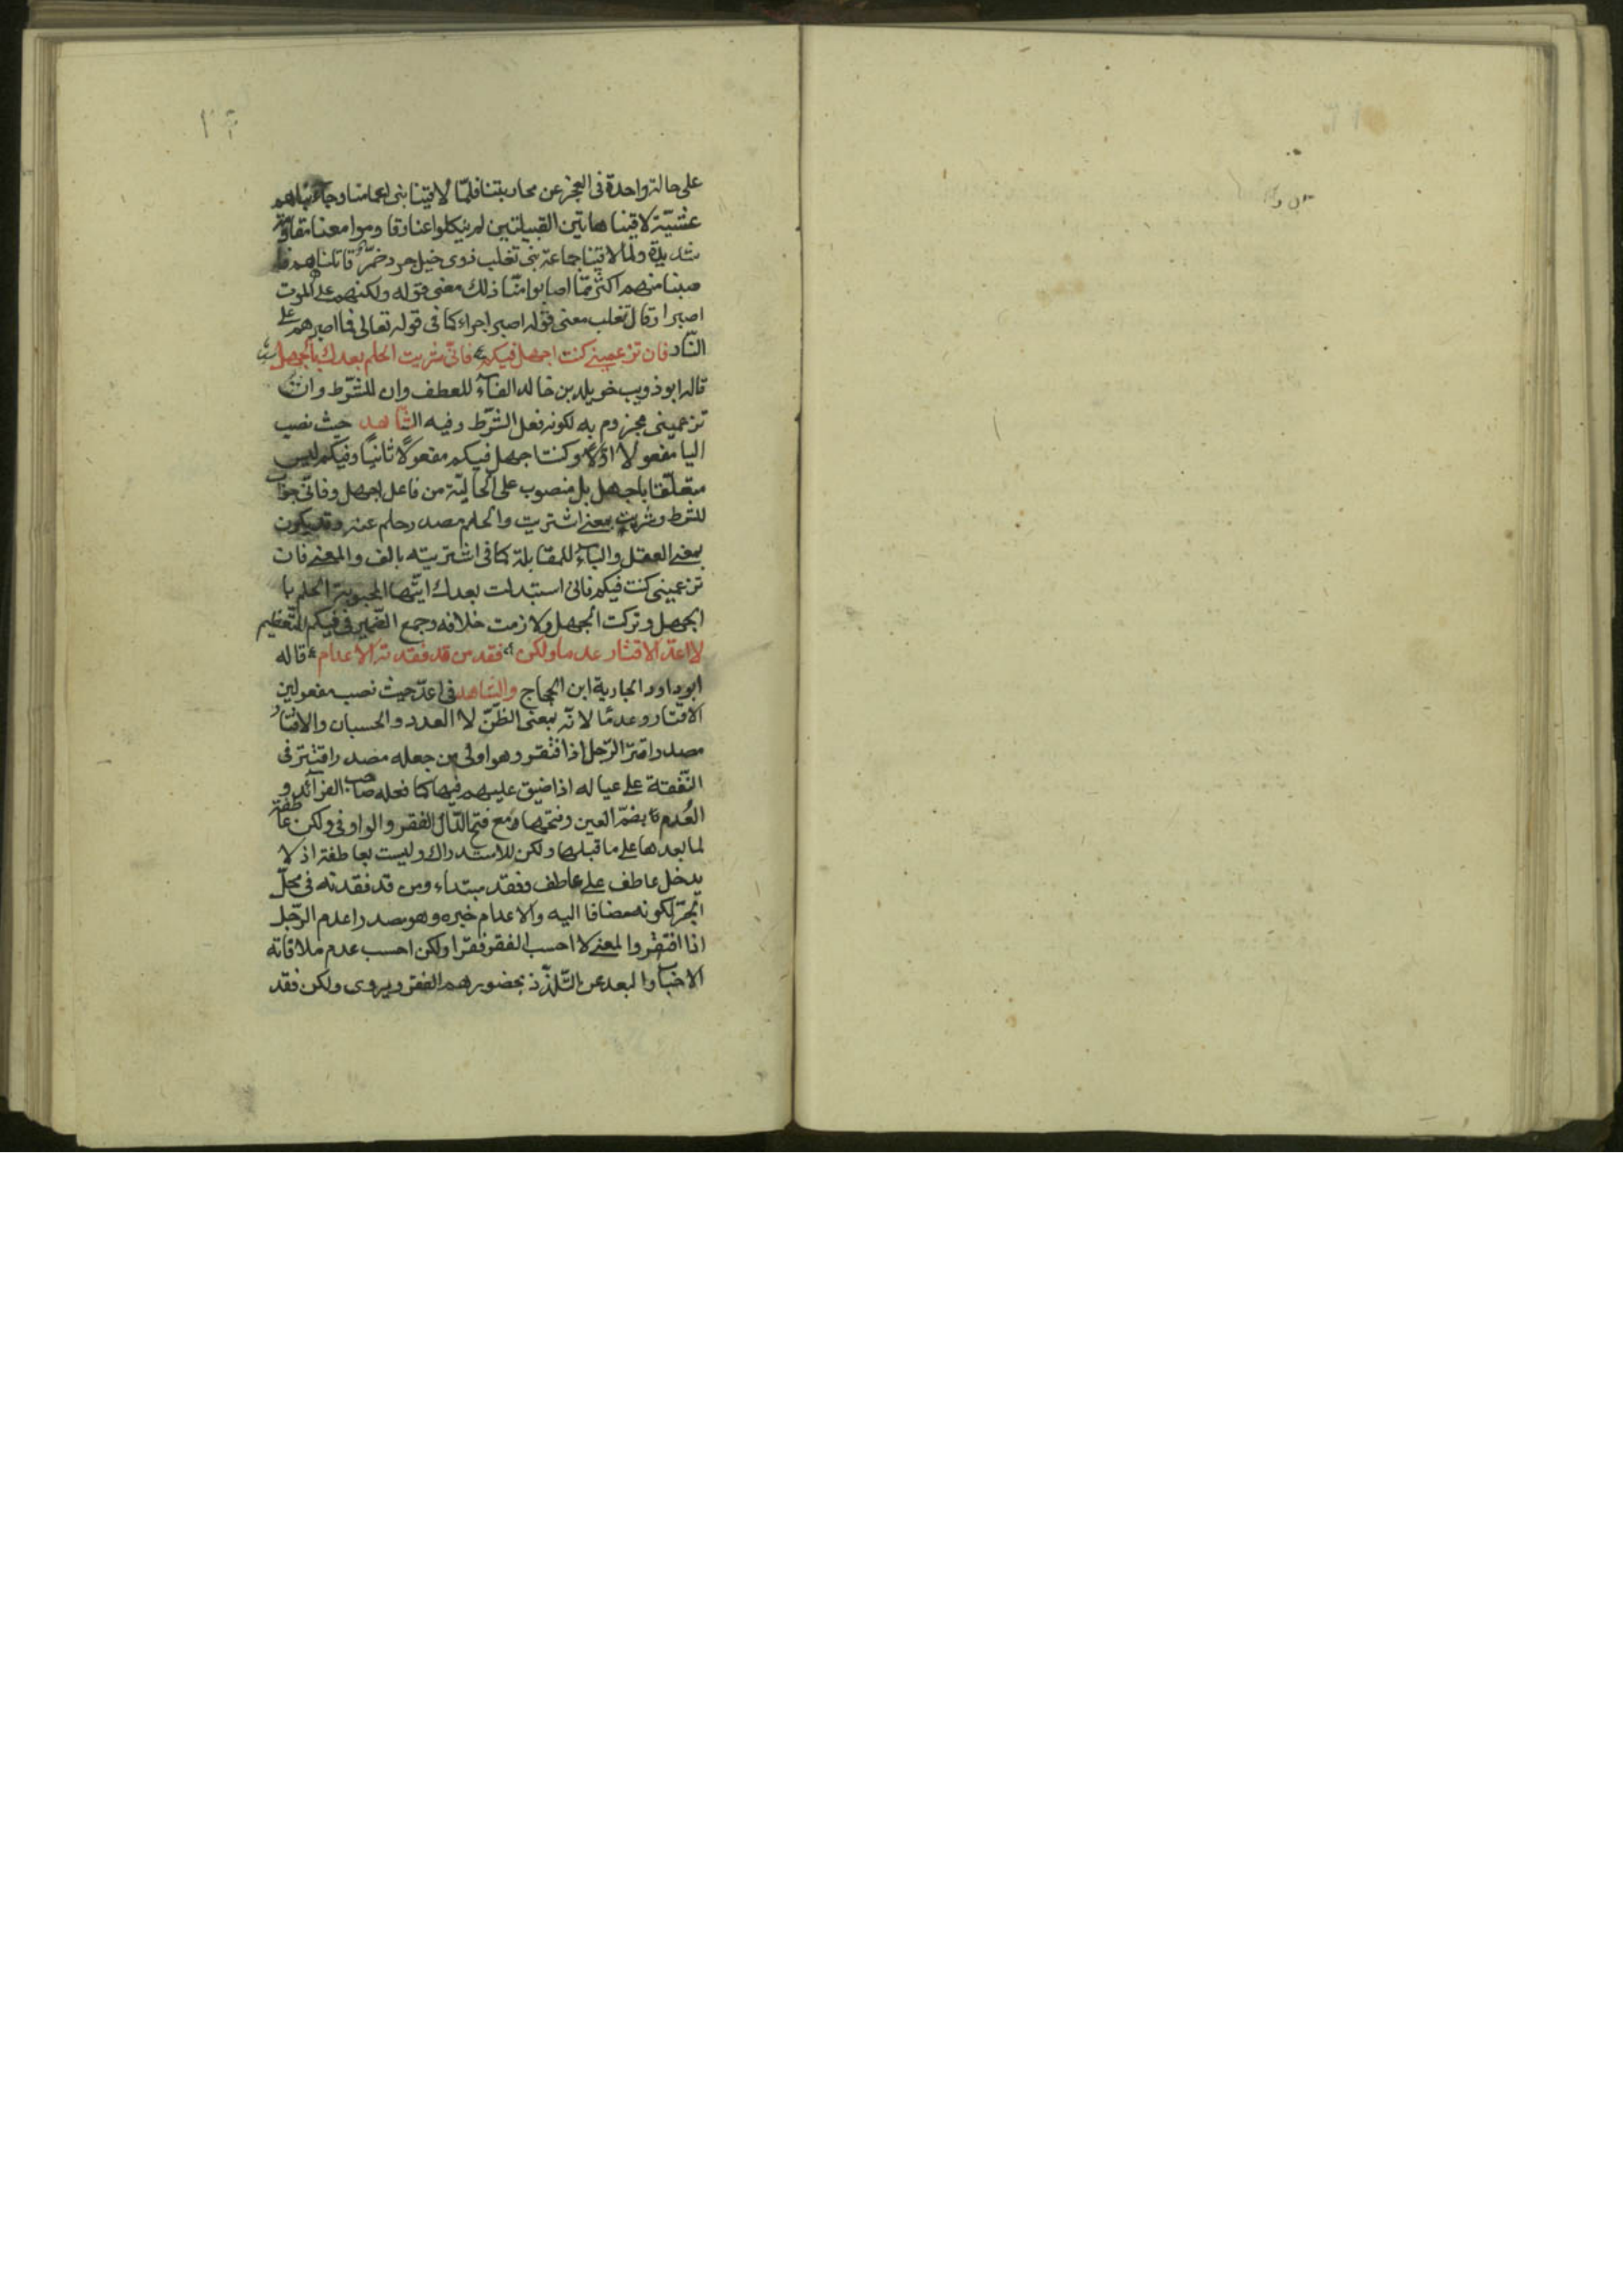 على حالة واحدة فى العجز عن محاربتنا فلمّا لاقينا بنى اعمامنا وجاء
عشيّة لاقينا هاتين القبيلتين لم ينكلوا عنا وقاوموا معنا مقاومة
شديدة ولمّا لاقينا جماعة بنى تغلب ذوى خيل جرد ضمّر قاتلناهم فا
صبنا منهم اكثر ممّا اصابوا منّا ذلك معنى قوله ولكنهم على الموت
اصبرا وقال تغلب معنى قوله اصبرا اجراء كما فى قوله تعالى فما اصبرهم على
النّار فان تزعمينى كنت اجهل فيكم فانّى شريت الحلم بعدك بالجهل
قاله ابو ذويب خويلد بن خالد الفاء للعطف وان للشّرط وان
تزعمينى مجزوم به لكونه فعل الشّرط وفيه الشّاهد حيث نصب
اليا مفعولا اوّلا وكنت اجهل فيكم مفعولًا ثانيًا وفيكم ليس
متعلّقا باجهل بل منصوب على الحاليّة من فاعل اجهل وفانّى جواب
للشرط وشريت بمعنى اشتريت والحلم مصدر حلم عنه وقد يكون
بمعنى العقل والباء للمقابلة كما فى اشتريته بالف والمعنى فان
تزعمينى كنت فيكم فانى استبدلت بعدك ايّتها المحبوبة الحلم با
الجهل وتركت الجهل ولازمت خلافه وجمع الضّمير فى فيكم للتّعظيم
لا اعدّ الاقتار عدما ولكن فقد من قد فقدته الاعدام قاله
ابو داود الجارية ابن الحجاج والشّاهد فى اعدّ حيث نصب مفعولين
الاقتار وعدمًا لانّه بمعنى الظّنّ لا العدد والحسبان والاقتار
مصدر اقترّ الرّجل اذا افتقر وهو اولى من جعله مصدر اقتر فى
النّفقة على عياله اذا ضيق عليهم فيها كما فعله صاحب الفرآئد و
العُدم بضمّ العين وفتحها ومع فتح الدّال الفقر والواو فى ولكن عاطفة
لما بعدها على ما قبلها ولكن للاستدراك وليست بعاطفة اذ لا
يدخل عاطف على عاطف وفقد مبتداء ومن قد فقدته فى محلّ
الجرّ لكونه مضافا اليه والاعدام خبره وهو مصدر اعدم الرّجل
اذا افتقر والمعنى لا احسب الفقر فقرا ولكن احسب عدم ملاقاته
الاحباب والبعد عن التّلذّذ بحضورهم الفقر ويروى ولكن فقد